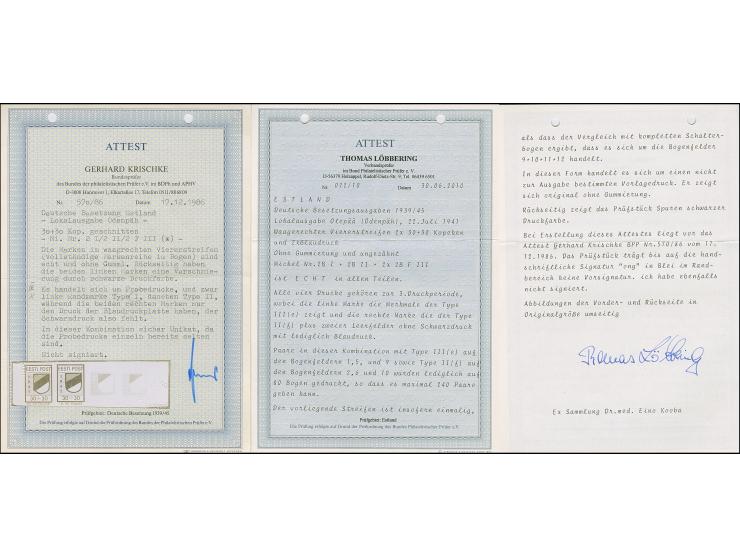 ATTEST
GERHARD KRISCHKE
Bundesprüfer
des Bundes der philatelistischen Prüfer e.V. im BDPh und APHV
D-3000 Hannover 1, Elkartallee 17, Telefon 0511/
Nr. 570/86 Datum 17.12.1986
Deutsche Besetzung Estland
- Lokalausgabe Odenpäh -
30+30 Kop. geschnitten
- Mi. Nr. 2 I/2 II/2 F III (x) -
Die Marken in waagrechten Viererstreifen
(vollständige Markenreihe im Bogen) sind
echt und ohne Gummi. Rückseitig haben
die beiden linken Marken eine Verschmie-
rung durch schwarze Druckfarbe.
Es handelt sich um Probedrucke, und zwar
linke Randmarke Type I, daneben Type II,
während die beiden rechten Marken nur
den Druck der Blaudruckplatte haben, der
Schwarzdruck also fehlt.
In dieser Kombination sicher Unikat, da
die Probedrucke einzeln bereits selten
sind.
Nicht signiert.
EESTI POST
30+30
EESTI POST
30+30
Prüfgebiet: Deutsche Besetzung 1939/45
Die Prüfung erfolgte auf Grund der Prüfordnung des Bundes der Philatelistischen Prüfer e.V.
ATTEST
THOMAS LÖBBERING
Verbandsprüfer
im Bund Philatelistischer Prüfer e. V.
D-56379 Holzappel, Rudolf-Dietz-Str. 9, Tel. 06439 6501
Nr 011/10 Datum 30.06.2010
E S T L A N D
Deutsche Besetzungsausgaben 1939/45
Lokalausgabe Otepää (Odenpäh), 22.Juli 1941
Waagerechten Viererstreifen 2x 30+30 Kopeken
und 2xBlaudruck
Ohne Gummierung und ungezähnt
Michel Nr.2B I + 2B II + 2x 2B F III
ist E C H T in allen Teilen.
Alle vier Drucke gehören zur 3.Druckperiode,
wobei die linke Marke die Merkmale der Type
III(e) zeigt und die rechte Marke die der Type
III(f) plus zweier Leerfelder ohne Schwarzdruck
mit lediglich Blaudruck.
Paare in diesen Kombination mit Type III(e) auf
den Bogenfeldern 1,5, und 9 sowie Type III(f) auf
den Bogenfeldern 2,6 und 10 wurden lediglich auf
80 Bogen gedruckt, so dass es maximal 240 Paare
geben kann.
Der vorliegende Streifen ist insofern einmalig,
Prüfgebiet: Estland
Die Prüfung erfolgte auf Grund der Prüfordnung des Bundes der Philatelistischen Prüfer e.V.
als dass der Vergleich mit kompletten Schalter-
bogen ergibt, dass es sich um die Bogenfelder
9+10+11+12 handelt.
In dieser Form handelt es sich um einen nicht
zur Ausgabe bestimmten Vorlagedruck. Er zeigt
sich original ohne Gummierung.
Rückseitig zeigt das Prüfstück Spuren schwarzer
Druckfarbe.
Bei Erstellung dieses Attestes liegt vor das
Attest Gerhard Krischke BPP Nr.570/86 vom 17.
12.1986. Das Prüfstück trägt bis auf die hand-
schriftliche Signatur "ong" in Blei im Rand-
bereich keine Vorsignatur. ich habe ebenfalls
nicht signiert.
Abbildungen der Vorder- und Rückseite in
Originalgröße umseitig
Thomas Löbbering
Ex Sammlung Dr.med. Eino Kooba